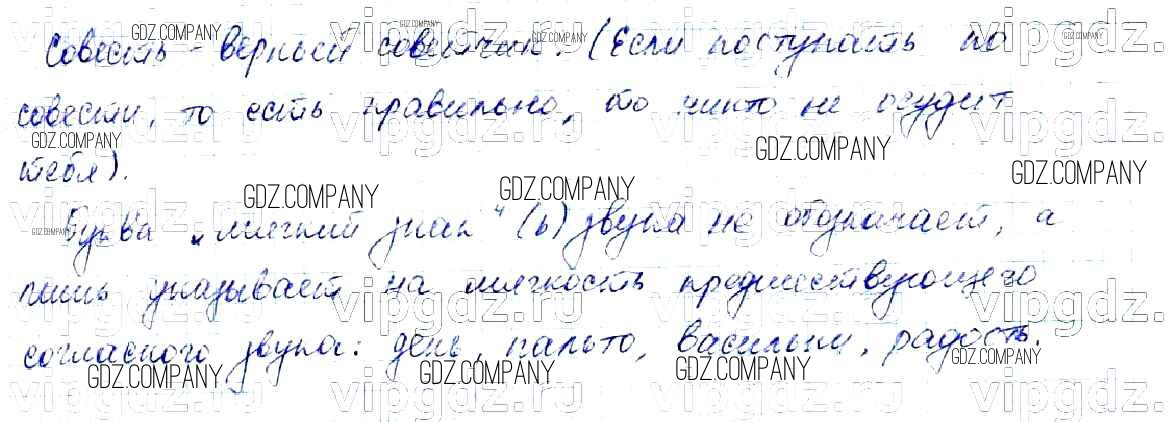 Совесть - верный советчик. (Если поступать по
совести, то есть правильно, то никто не осудит
тебя).
Буква „мягкий знак“ (ь) звука не обозначает, а
лишь указывает на мягкость предшествующего
согласного звука: день, пальто, васильки, радость.